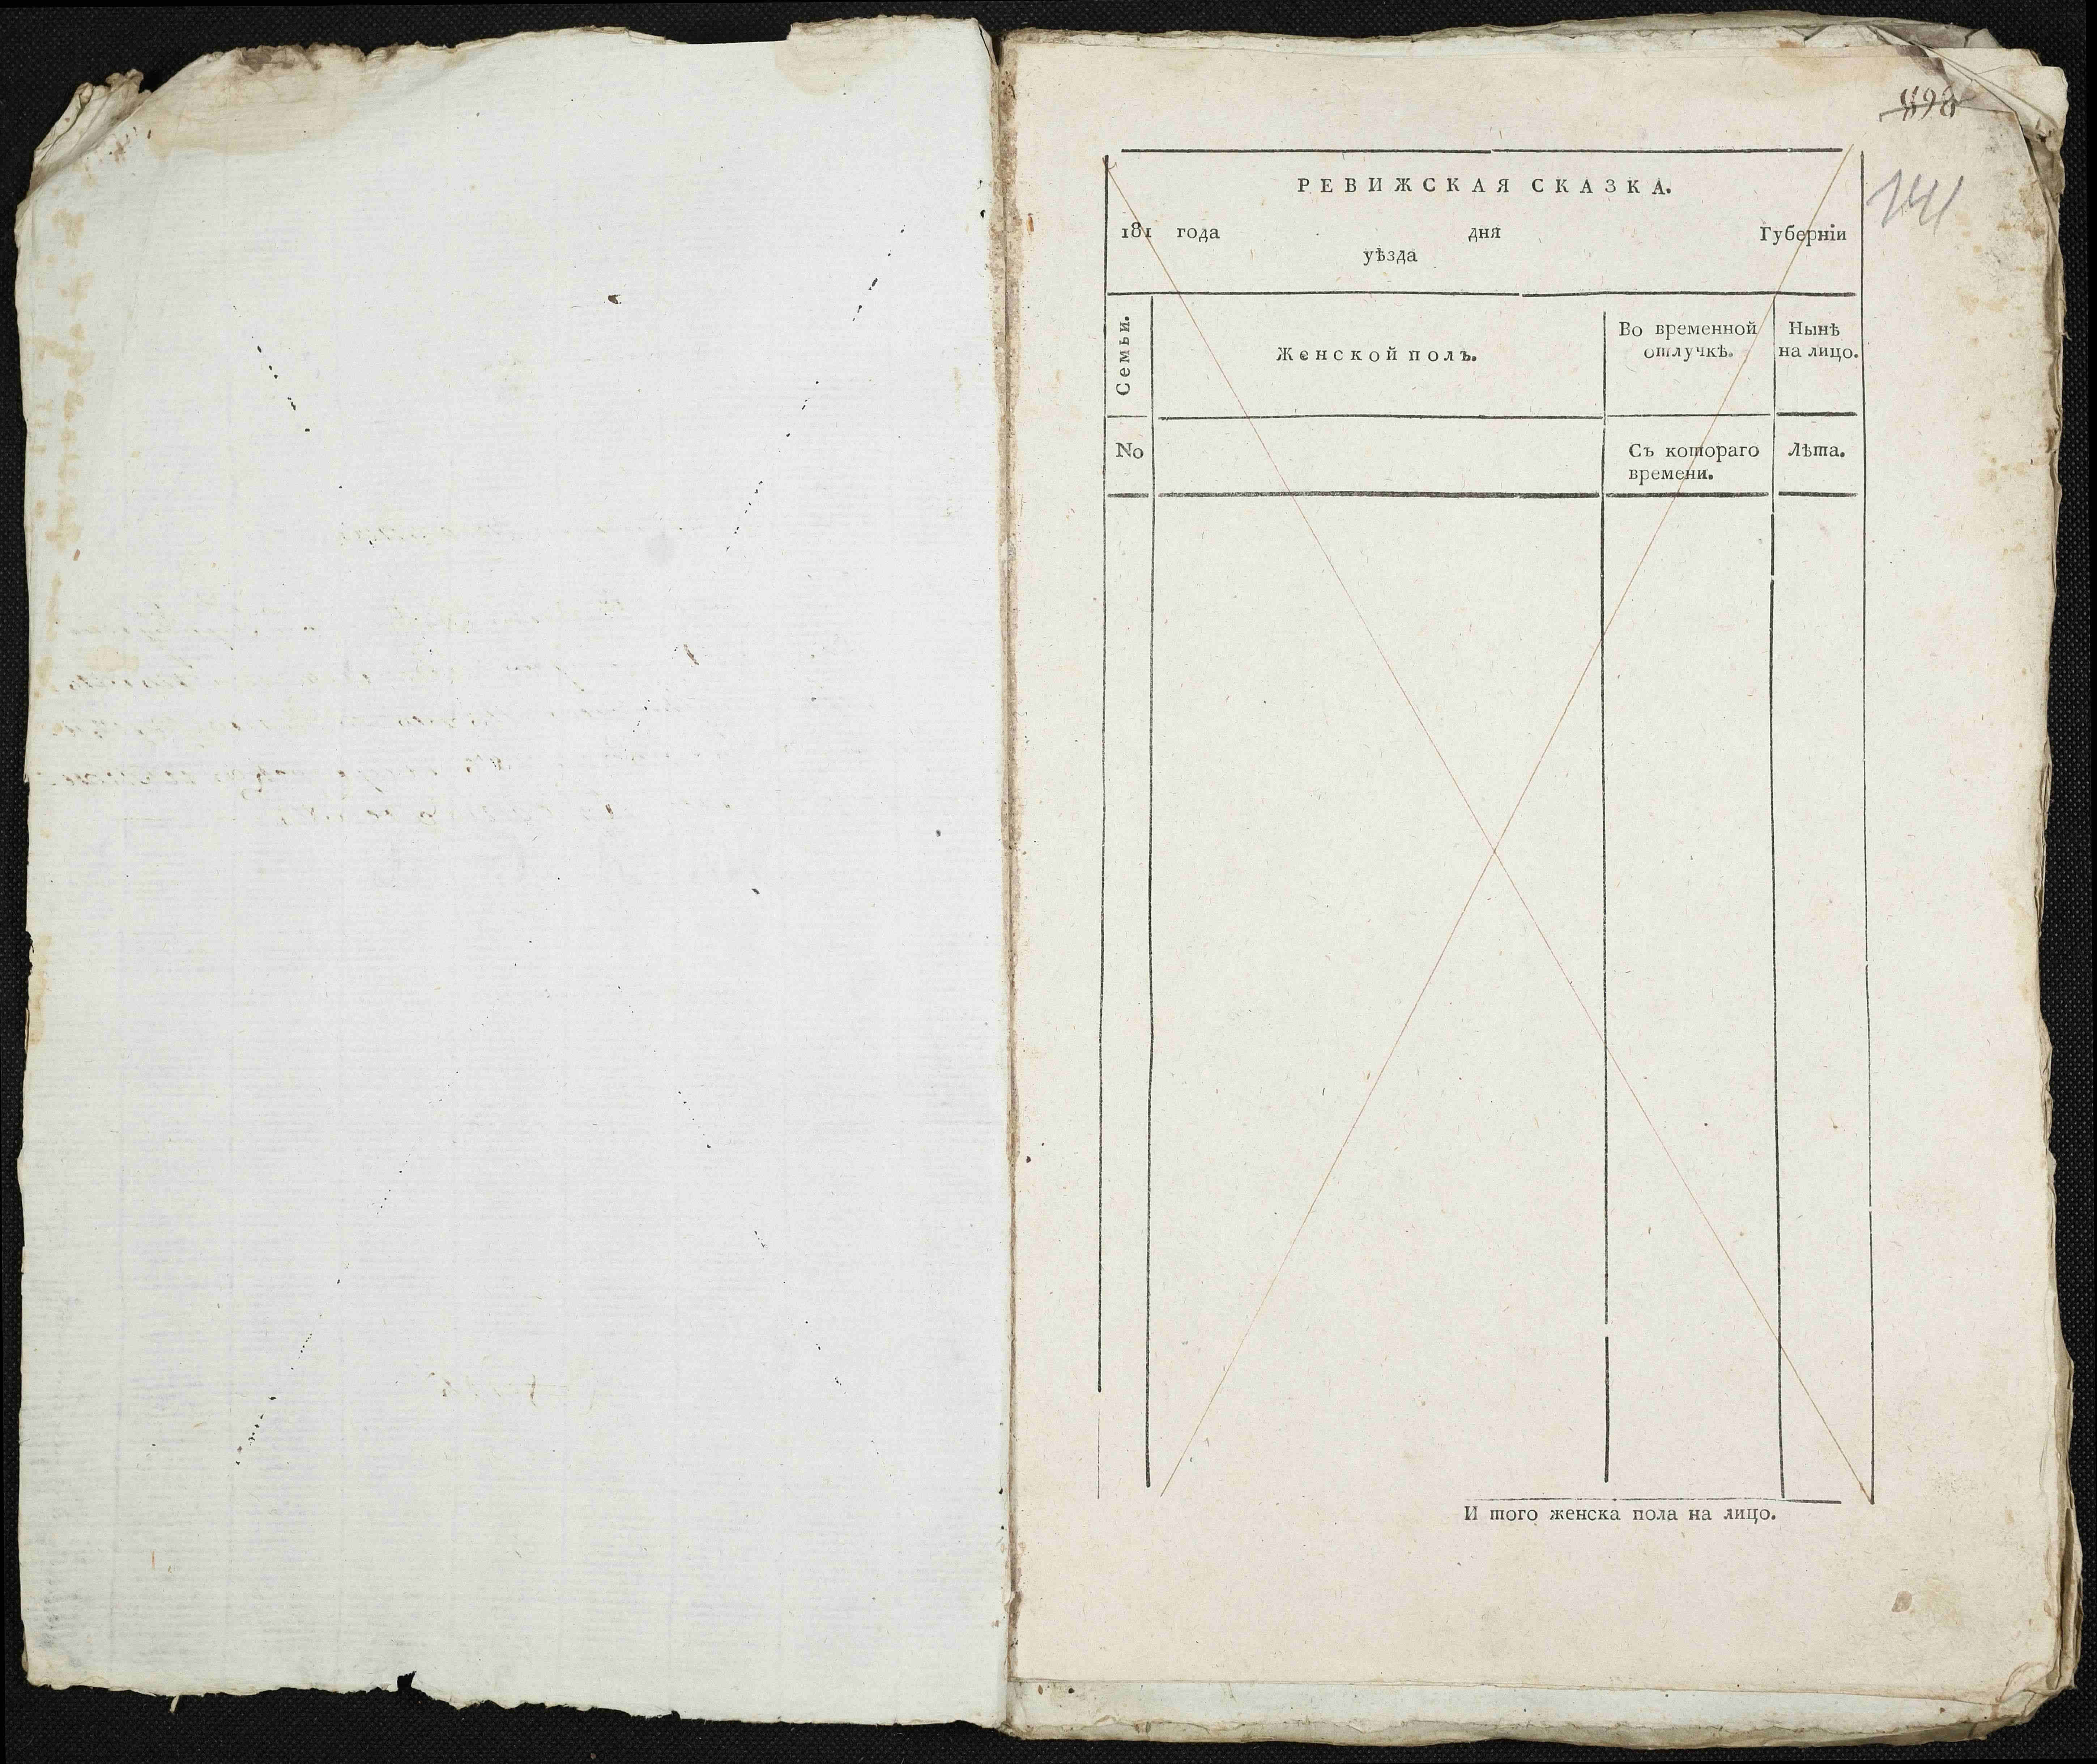 898
141
РЕВИЖСКАЯ СКАЗКА.
181 года дня Губернїи
уѣзда
Семьи.
Женской полъ.
Во временной отлучкѣ.
Нынѣ на лицо.
No
Съ котораго времени.
Лѣта.
И того женска пола на лицо.